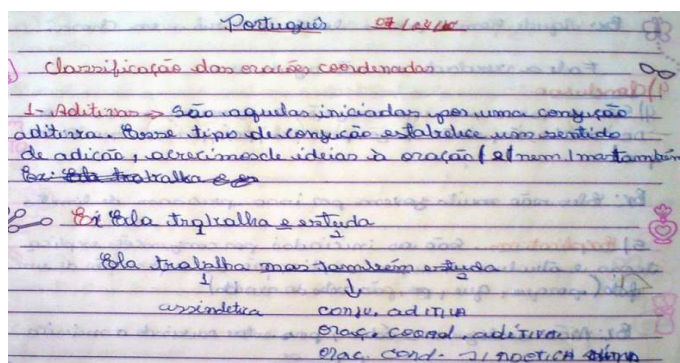 Português 07/04/10
Classificação das orações coordenadas
1- Aditivas → São aquelas iniciadas por uma conjução
aditiva. Esse tipo de conjução estabelece um sentido
de adição, acrecimosde ideias à oração (e/nem/mastambém
Ex: Ela trabalha e es
Ex Ela trabralha e estuda
1 2
Ela trabalha mas também estuda
1 2
assindetica conju. aditiva
oraç. coord. aditiva
oraç cord. SINDETICA